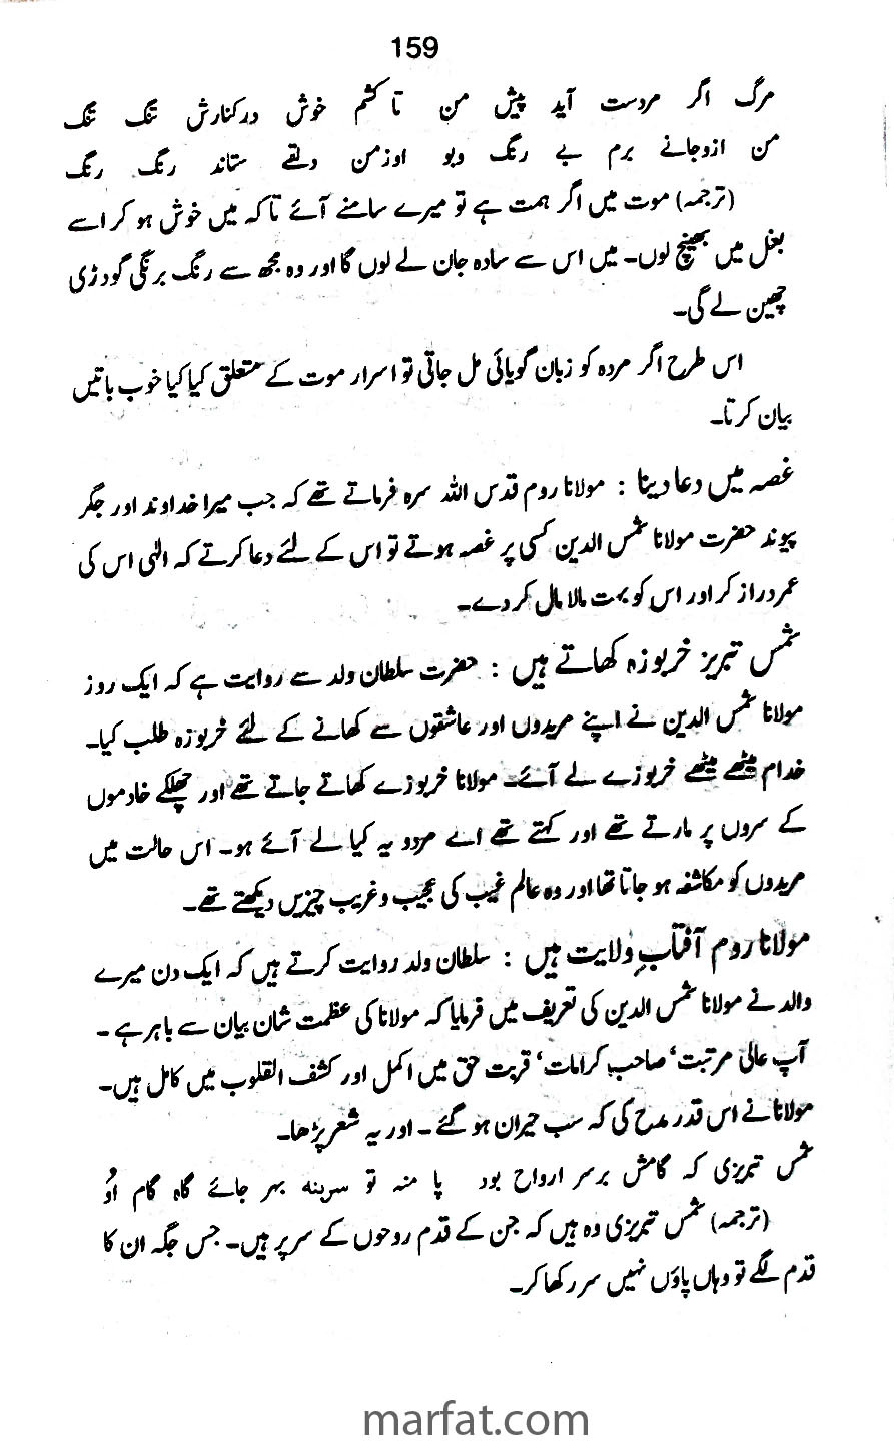 159
مرگ اگر مردست آید پیش من تا کشم خوش درکنارش تنگ تنگ
من ازوجانے برم بے رنگ وبو اوزمن دلقے ستاند رنگ رنگ
(ترجمہ) موت میں اگر ہمت ہے تو میرے سامنے آئے تاکہ میں خوش ہو کر اسے
بغل میں بھینچ لوں۔ میں اس سے سادہ جان لے لوں گا اور وہ مجھ سے رنگ برنگی گودڑی
چھین لے گی۔
اس طرح اگر مردہ کو زبان گویائی مل جاتی تو اسرار موت کے متعلق کیا کیا خوب باتیں
بیان کرتا۔
غصہ میں دعا دینا : مولانا روم قدس اللہ سرہ فرماتے تھے کہ جب میرا خداوند اور جگر
پیوند حضرت مولانا شمس الدین کسی پر غصہ ہوتے تو اس کے لئے دعا کرتے کہ الٰہی اس کی
عمر دراز کر اور اس کو بہت مالا مال کر دے۔
شمس تبریز خربوزہ کھاتے ہیں : حضرت سلطان ولد سے روایت ہے کہ ایک روز
مولانا شمس الدین نے اپنے مریدوں اور عاشقوں سے کھانے کے لئے خربوزہ طلب کیا۔
خدام میٹھے میٹھے خربوزے لے آئے۔ مولانا خربوزے کھاتے جاتے تھے اور چھلکے خادموں
کے سروں پر مارتے تھے اور کہتے تھے اے مردو یہ کیا لے آئے ہو۔ اس حالت میں
مریدوں کو مکاشفہ ہو جاتا تھا اور وہ عالم غیب کی عجیب و غریب چیزیں دیکھتے تھے۔
مولانا روم آفتابِ ولایت ہیں : سلطان ولد روایت کرتے ہیں کہ ایک دن میرے
والد نے مولانا شمس الدین کی تعریف میں فرمایا کہ مولانا کی عظمت شان بیان سے باہر ہے۔
آپ عالی مرتبت‘ صاحب کرامات‘ قربت حق میں اکمل اور کشف القلوب میں کامل ہیں۔
مولانا نے اس قدر مدح کی کہ سب حیران ہو گئے۔ اور یہ شعر پڑھا۔
شمس تبریزی کہ گامش برسر ارواح بود پا منہ تو سربنہ بہر جائے گاہ گام اوُ
(ترجمہ) شمس تبریزی وہ ہیں کہ جن کے قدم روحوں کے سر پر ہیں۔ جس جگہ ان کا
قدم لگے تو وہاں پاؤں نہیں سر رکھا کر۔
marfat.com